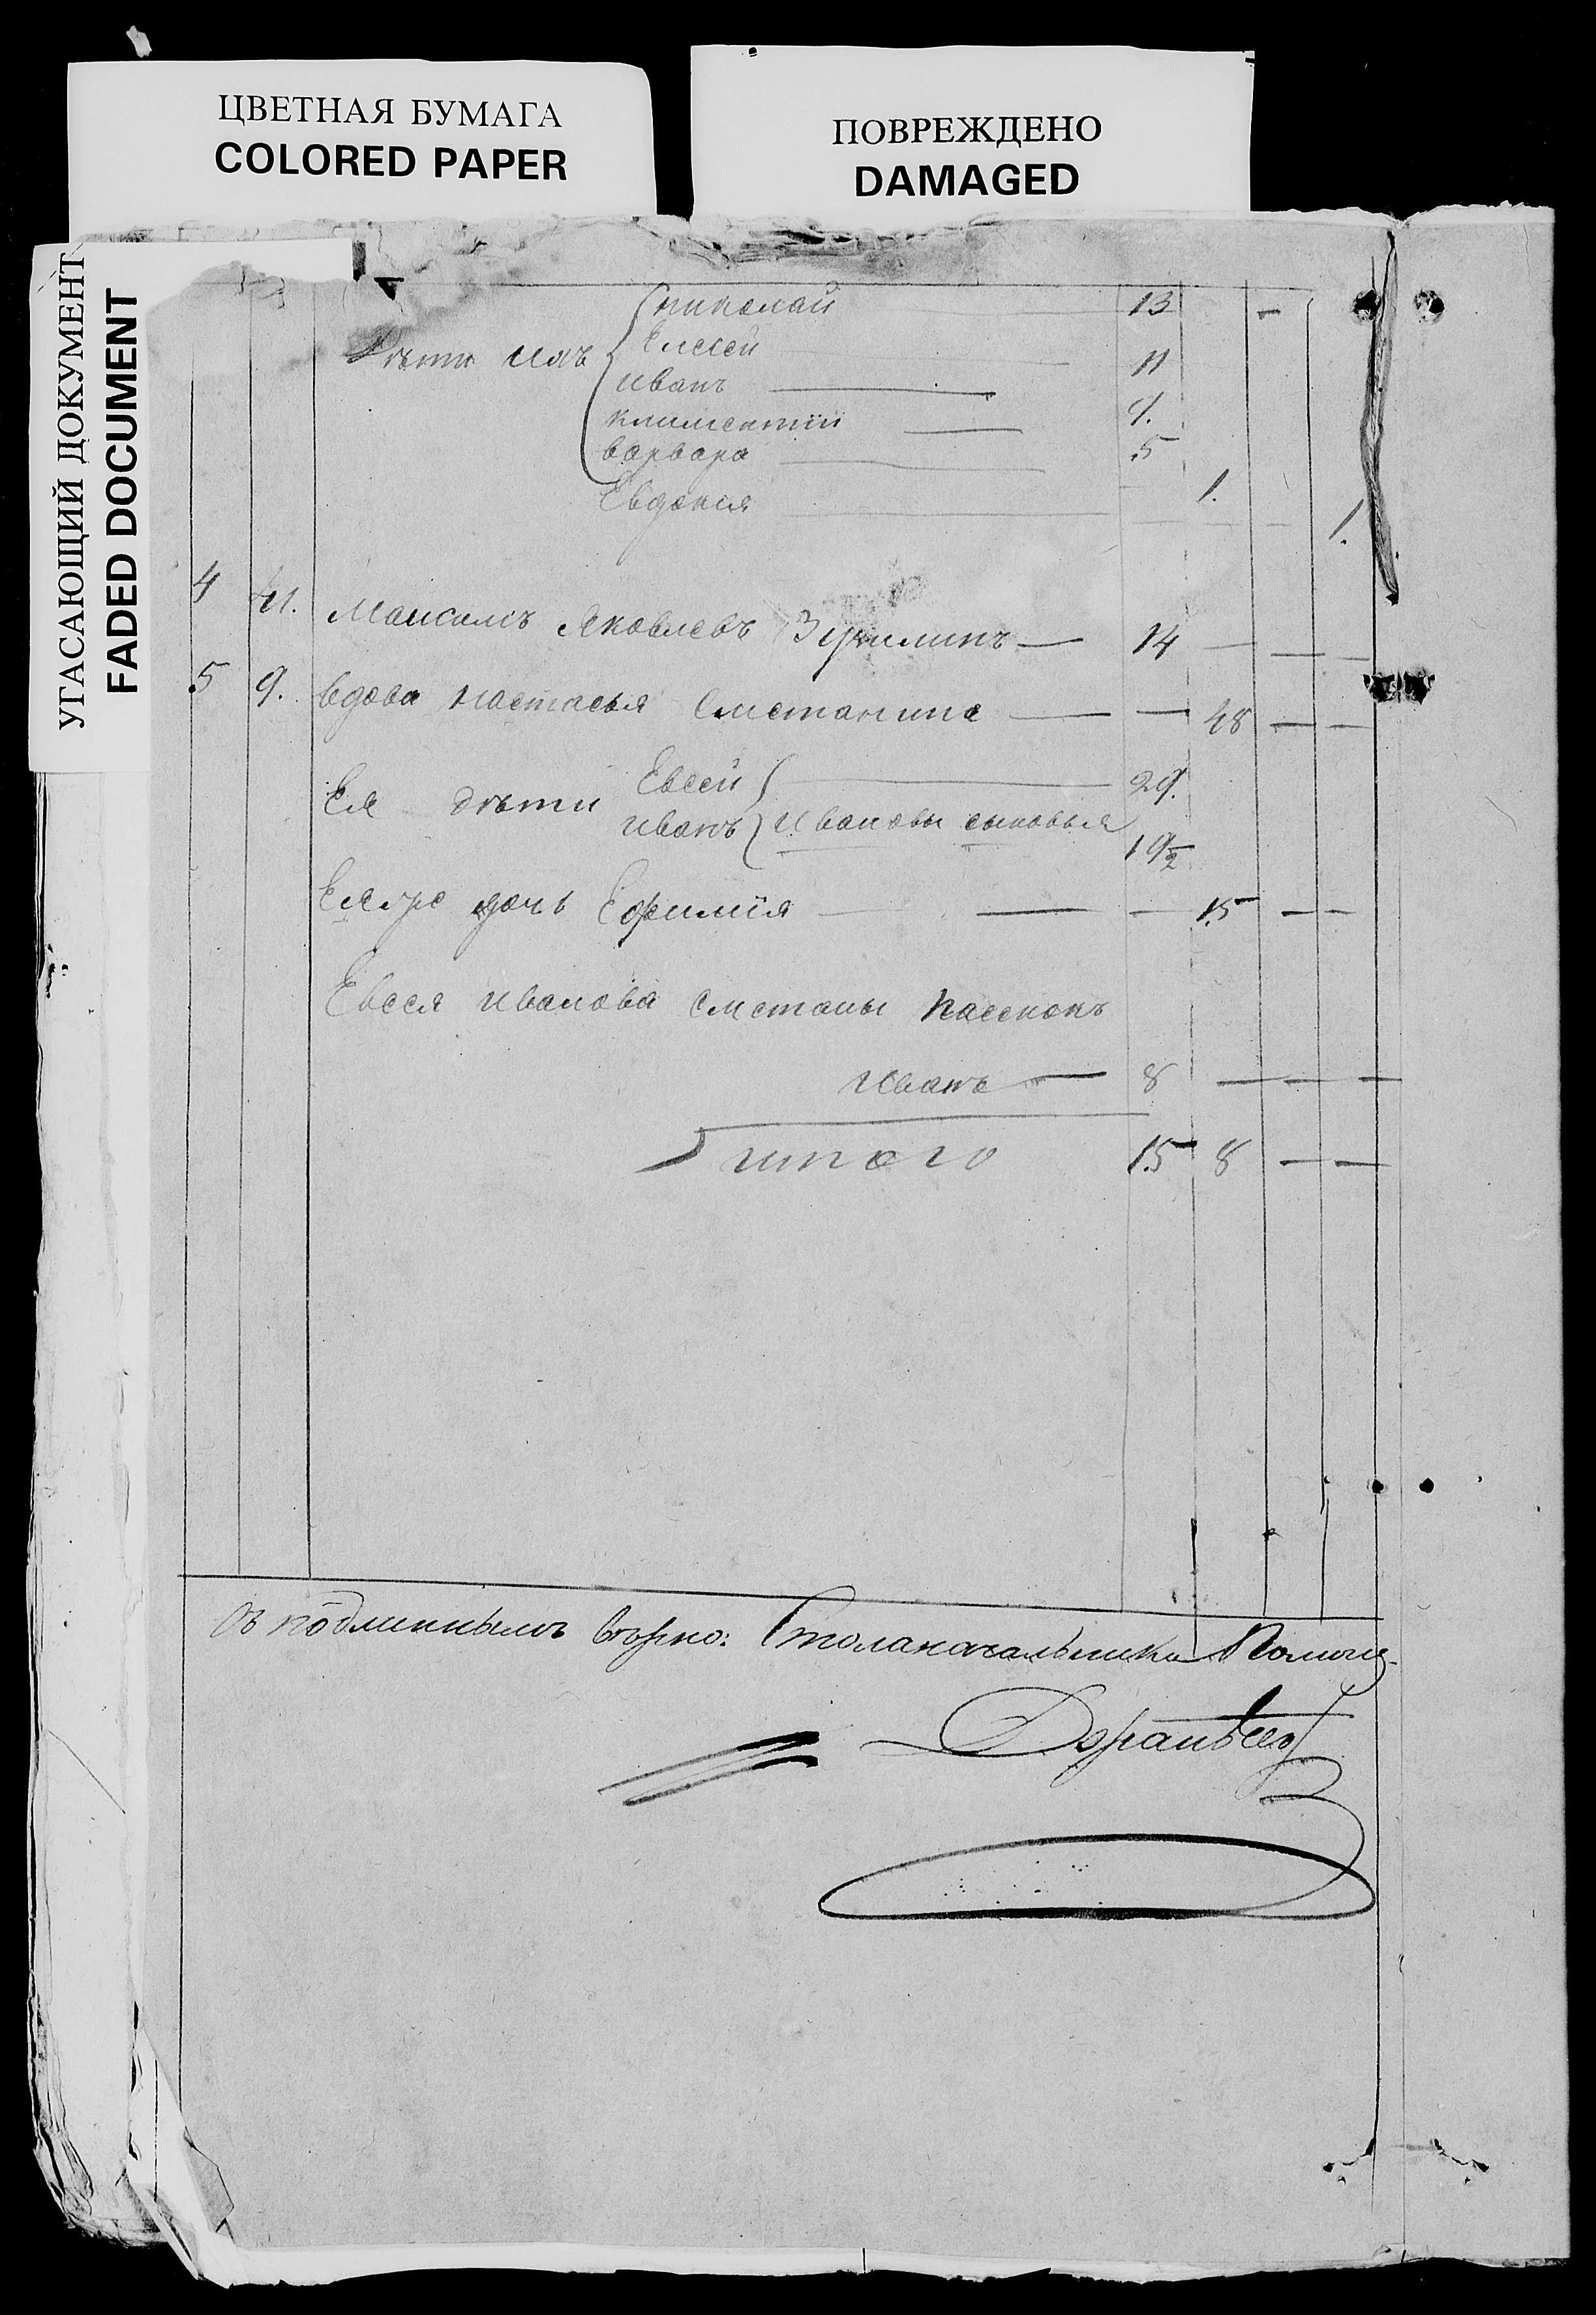 ЦВЕТНАЯ БУМАГА
COLORED PAPER
ПОВРЕЖДЕНО
DAMAGED
УГАСАЮЩИЙ ДОКУМЕНТ
FADED DOCUMENT
николай 13 -
Дѣти ихъ Елисей 11
иванъ 9.
климентий 5
варвара 1.
Евдокия 1.
4 Максимъ Яковлевъ 14
5 9. вдова настасья Сметанина 48
Ея дѣти Евсей 29.
иванъ ивановы сыновья 19½
Ея же дочь Ефимія 15
Евсея иванова Сметаны пасенокъ
иванъ 8
итого 15 8
Съ подлиннымъ вѣрно: Столаначальника Помощ.